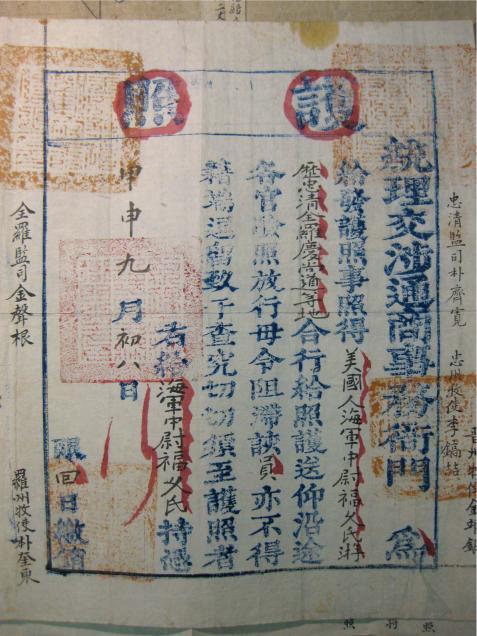 護照
忠清監司朴齊寬
忠州牧使李鎬喆
統理交涉通商事務衙門 為
給發護照事照得美國人海軍中尉福久氏游
歷忠清全羅慶尚道等地合行給照護送仰沿途
各官驗照放行毋令阻滯該員亦不得
藉端逗留致干查究切切須至護照者
右給海軍中尉福久氏持憑
甲申九月初八日
限回日繳銷
全羅監司金聲根
羅州牧使朴奎東